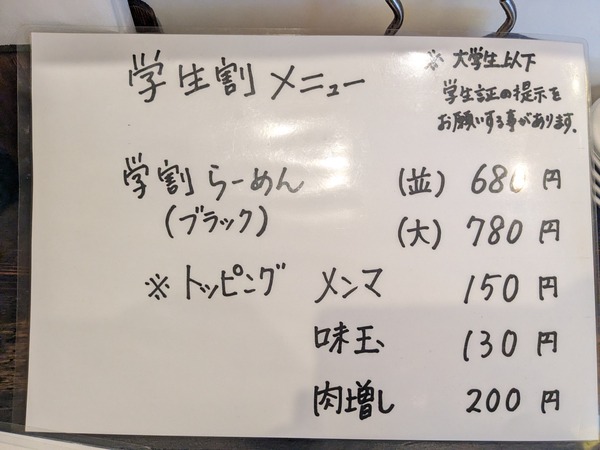 学生割メニュー
※ 大学生以下
学生証の提示を
お願いする事があります。
学割らーめん (並) 680円
(ブラック) (大) 780円
※トッピング メンマ 150円
味玉 130円
肉増し 200円